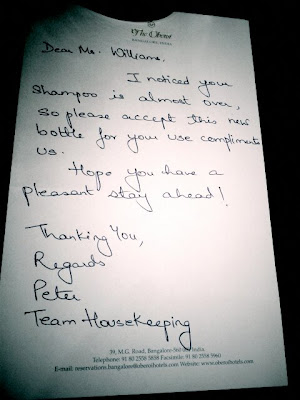 The Oberoi
BANGALORE, INDIA
Dear Ms. Williams,
I noticed your
Shampoo is almost over,
so please accept this new
bottle for your use compliments
us.
Hope you have a
pleasant stay ahead!
Thanking You,
Regards
Peter
Team Housekeeping
39, M.G. Road, Bangalore-560 001 India.
Telephone: 91 80 2558 5858 Facsimile: 91 80 2558 5960
E-mail: reservations.bangalore@oberoihotels.com Website: www.oberoihotels.com